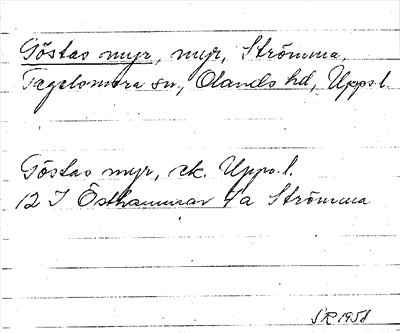 Göstas myr, myr, Strömma,
Tegelsmora sn, Olands hd, Upps.l.
Göstas myr, ek. Upps.l.
12 I Östhammar 4a Strömma
SR 1958